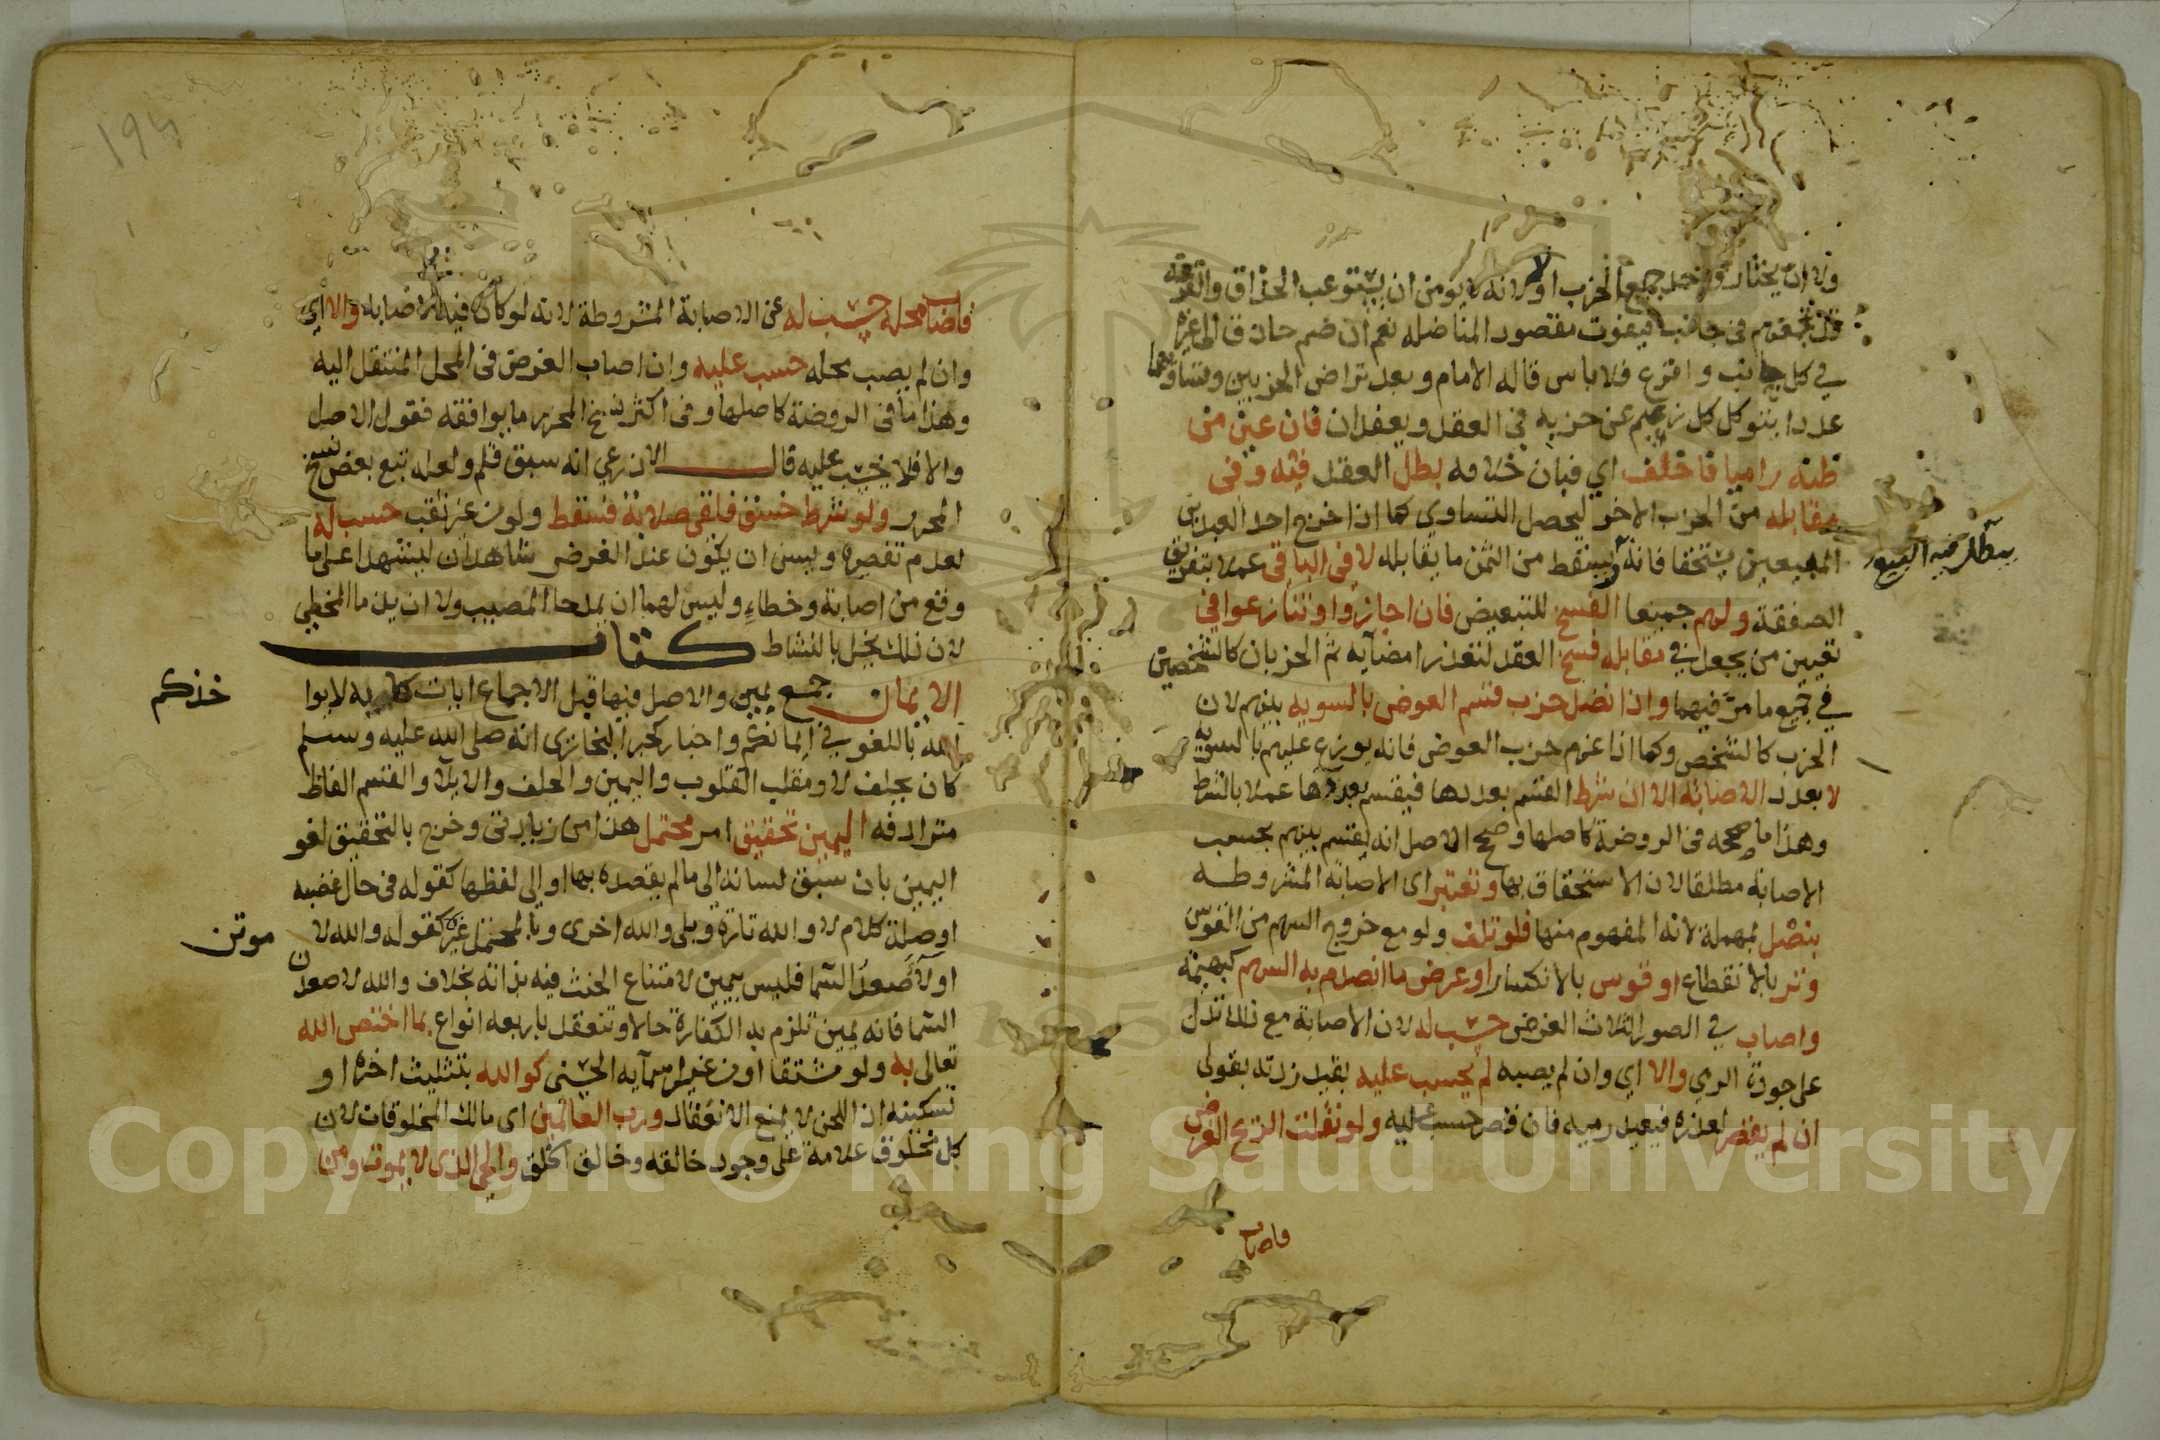 ولا ان يختار واحد جميع الحزب اولا لانه لا يومن ان يستوعب الحذاق والقرعة
قد تجمعهم في جانب فيفوت مقصود المناضلة نعم ان ضم حاذق الى غيره
في كل جانب واقرع فلا باس قاله الامام وبعد تراضي الحزبين وتساويهما
عددا يتوكل كل زعيم عن حزبه في العقد ويعقدان فان عين من
ظنه راميا فاخلف اي فبان خلافه بطل العقد فيه وفي
مقابله من الحزب الاخر ليحصل التساوي كما اذا خرج احد العبدين
المبيعين مستحقا فانه يسقط من الثمن ما يقابله لا في الباقي عملا بتفريق
يبطل فيه البيع و
الصفقة ولهم جميعا الفسخ للتبعيض فان اجازوا وتنازعوا في
تعيين من يجعل في مقابله فسخ العقد لتعذر امضايه ثم الحزبان كالشخصين
في جميع ما مر فيهما واذا نضل حزب قسم العوض بالسوية بينهم لان
الحزب كالشخص وكما اذا غرم حزب العوض فانه يوزع عليهم بالسوية
لا بعدد الاصابة الا ان شرط القسم بعددها فيقسم بعددها عملا بالشرط
وهذا ما صححه في الروضة كاصلها وصحح الاصل انه يقسم بينهم بحسب
الاصابة مطلقا لان الاستحقاق بها وتعتبر اي الاصابة المشروطة
بنصل بمهملة لانه المفهوم منها فلو تلف ولو مع خروج السهم من القوس
وتر بالانقطاع او قوس بالانكسار او عرض ما انصدم به السهم كبهيمة
واصاب في الصور الثلاث الغرض حسب له لان الاصابة مع ذلك تدل
على جودة الرمي والا اي وان لم يصبه لم يحسب عليه بقيد زدته بقولي
ان لم يقصر لعذره فيعيد رميه فان قصر حسب عليه ولو نقلت الريح الغرض
فاصاب
194
فاصاب محله حسب له عن الاصابة المشروطة لانه لو كان فيه لاصابه والا اي
وان لم يصب محله حسب عليه وان اصاب الغرض في المحل المنتقل اليه
وهذا ما في الروضة كاصلها وفي اكثر نسخ المحرر ما يوافقه فقول الاصل
والا فلا يحسب عليه قال الاذرعي انه سبق قلم ولعله تبع بعض نسخ
المحرر ولو شرط خسق فلقي صلابة فسقط ولو من غير ثقب حسب له
لعدم تقصيره ويسن ان يكون عند الغرض شاهدان ليشهدا على ما
وقع من اصابة وخطاء وليس لهما ان يمدحا المصيب ولا ان يذما المخطي
لان ذلك يخل بالنشاط كتاب
الايمان جمع يمين والاصل فيها قبل الاجماع ايات كاية لا يوا
خذكم
الله باللغو في ايمانكم واخبار كخبر البخاري انه صلى الله عليه وسلم
كان يحلف لا ومقلب القلوب واليمين والحلف والايلا والقسم الفاظ
مترادفه اليمين تحقيق امر محتمل هذا من زيادتي وخرج بالتحقيق لغو
اليمين بان سبق لسانه الى ما لم يقصده بها او الى لفظها كقوله في حال غضبه
او صلة كلام لا والله تارة وبلى والله اخرى وبالمحتمل غيره كقوله والله لا
موتن
او لا صعد السما فليس بيمين لامتناع الحنث فيه بذاته بخلاف والله لا صعدن
السما فانه يمين تلزم به الكفارة حالا وتنعقد باربعه انواع بما اختص الله
تعالى به ولو مشتقا او من غير اسمايه الحسنى كوالله بتثليث اخره او
تسكينه اذ اللحن لا يمنع الانعقاد ورب العالمين اى مالك المخلوقات لان
كل مخلوق علامة على وجود خالقه وخالق الخلق والحي الذي لا يموت ومن
Copyright © King Saud University